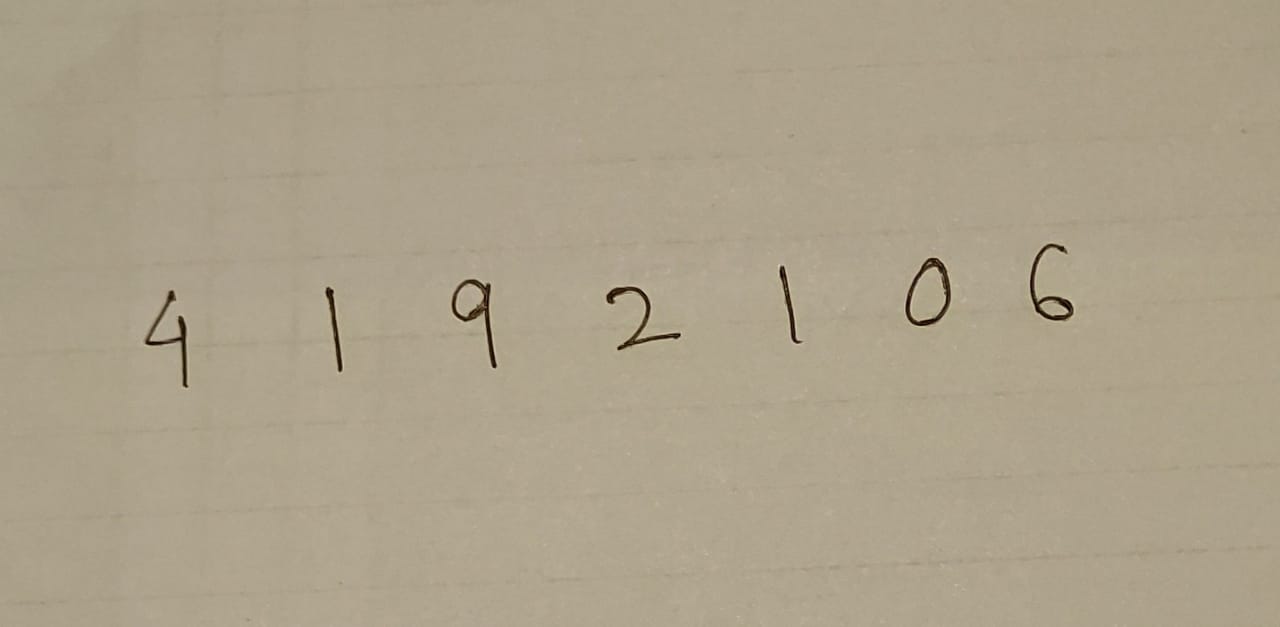 4 1 9 2 1 0 6